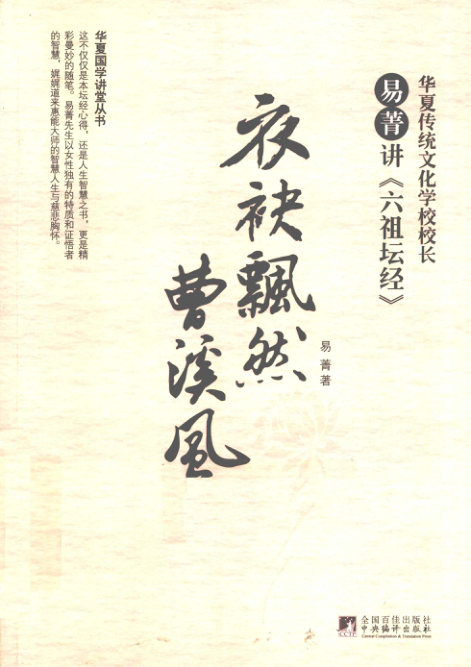 华夏传统文化学校校长
易菁讲《六祖坛经》
易菁著
衣袂飄然
曹溪風
华夏国学讲堂丛书
这不仅仅是本坛经心得,还是人生智慧之书,更是精
彩曼妙的随笔。易菁先生以女性独有的特质和证悟者
的智慧,娓娓道来惠能大师的智慧人生与慈悲胸怀。
CCTP
全国百佳出版社
中央编译出版社
Central Compilation & Translation Press